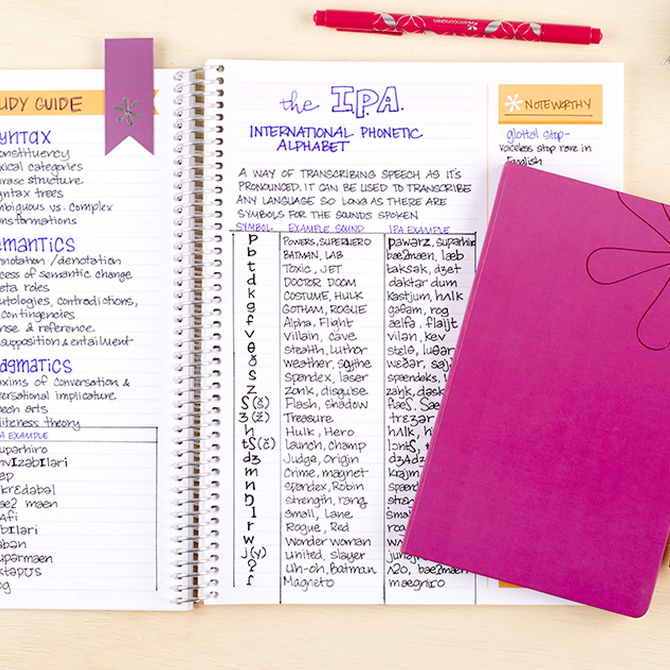 UDY GUIDE
yntax
onstituency
xical categories
rase structure
yntax trees
mbiguous vs. complex
ansformations
emantics
nnotation / denotation
cess of semantic change
eta roles
utologies, contradictions,
contingencies
nse & reference
supposition & entailment
agmatics
xims of conversation &
versational implicature
eech arts
liteness theory
A EXAMPLE
uparhiro
nvIzəbIləri
ep
krɛdəbəl
maen
Afi
bIləri
aban
uparmaen
ktəpʊs
og
the I.P.A.
INTERNATIONAL PHONETIC
ALPHABET
A WAY OF TRANSCRIBING SPEECH AS IT'S
PRONOUNCED. IT CAN BE USED TO TRANSCRIBE
ANY LANGUAGE SO LONG AS THERE ARE
SYMBOLS FOR THE SOUNDS SPOKEN
SYMBOL EXAMPLE SOUND IPA EXAMPLE
p POWERS, SUPERHERO pawərz, supərhir
b BATMAN, LAB bæʔmæn, læb
t Toxic, JET taksək, dʒet
d DOCTOR DOOM daktər dum
k COSTUME, HULK kastjum, hʌlk
g GOTHAM, ROGUE gaθəm, rog
f Alpha, Flight ælfə, flaIt
v villain, cave vIlən, kev
θ stealth, Luthor stɛlθ, luθər
ð weather, scythe wɛðər, saI
s spandex, laser spændɛks, l
z zonk, disguise zaŋk, dəsk
ʃ(š) Flash, Shadow flæʃ, ʃæ
ʒ(ž) Treasure trɛʒər
h Hulk, Hero hʌlk, h
tʃ(č) launch, champ lɔntʃ,
dʒ Judge, Origin dʒʌdʒ
m Crime, magnet kraIm
n spandex, Robin spænd
ŋ strength, rang strɛŋ
l small, Lane smal
r Rogue, Red rog
w Wonder woman
j(y) united, slayer
ʔ Uh-oh, Batman ʌʔo, bæʔmæn
ɾ Magneto mægniɾo
NOTEWORTHY
glottal stop-
voiceless stop rare in
English